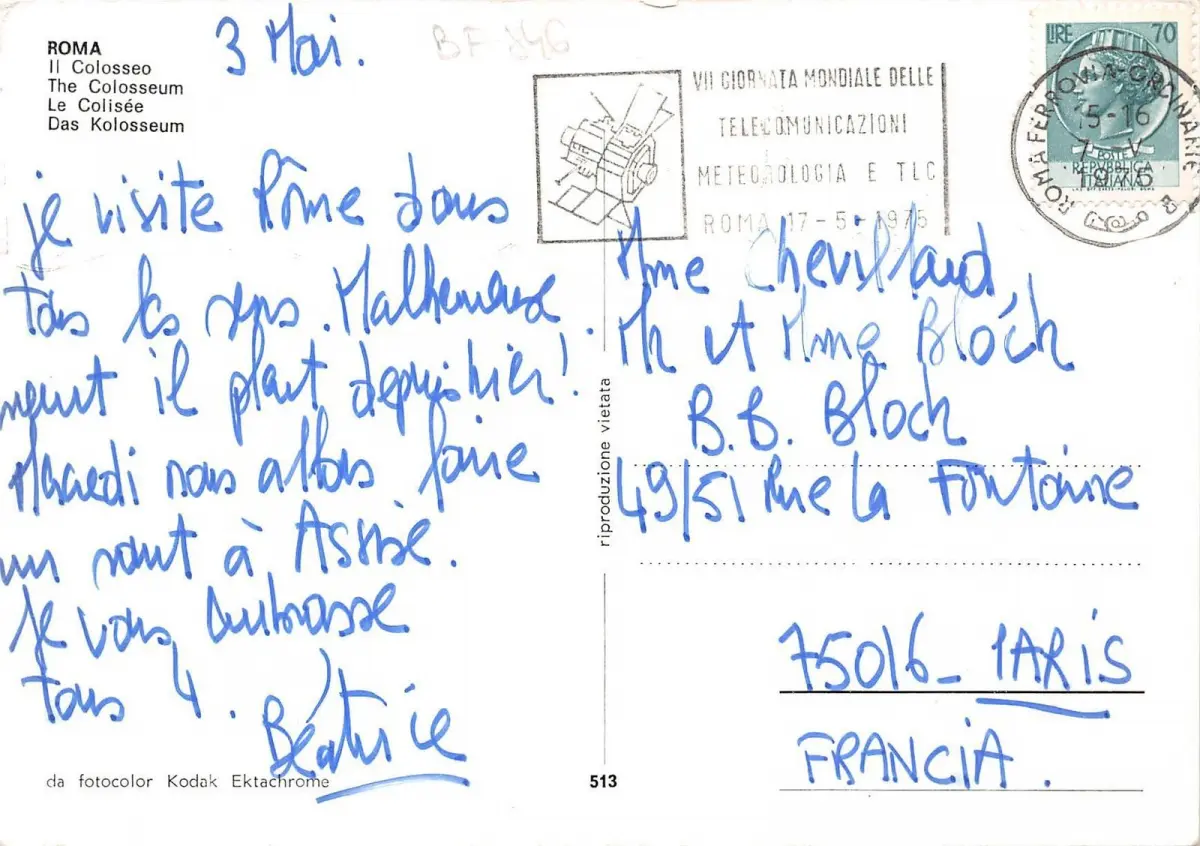 ROMA
Il Colosseo
The Colosseum
Le Colisée
Das Kolosseum
3 Mai.
BF 846
je visite Rôme dans
tous les sens. Malheureuse
ment il pleut depuis hier!
Mercredi nous allons faire
un saut à Assise.
Je vous embrasse
tous 4.
Béatrice
da fotocolor Kodak Ektachrome
513
riproduzione vietata
VII GIORNATA MONDIALE DELLE
TELECOMUNICAZIONI
METEOROLOGIA E TLC
ROMA 17-5-1975
LIRE 70
POSTE
REPVBBLICA
ITALIANA
ROMA FERROVIA-ORDINARIE
15-16
V
1975
Mme Chevilland,
Mr et Mme Bloch
B.B. Bloch
49/51 Rue La Fontaine
75016 - PARIS
FRANCIA.